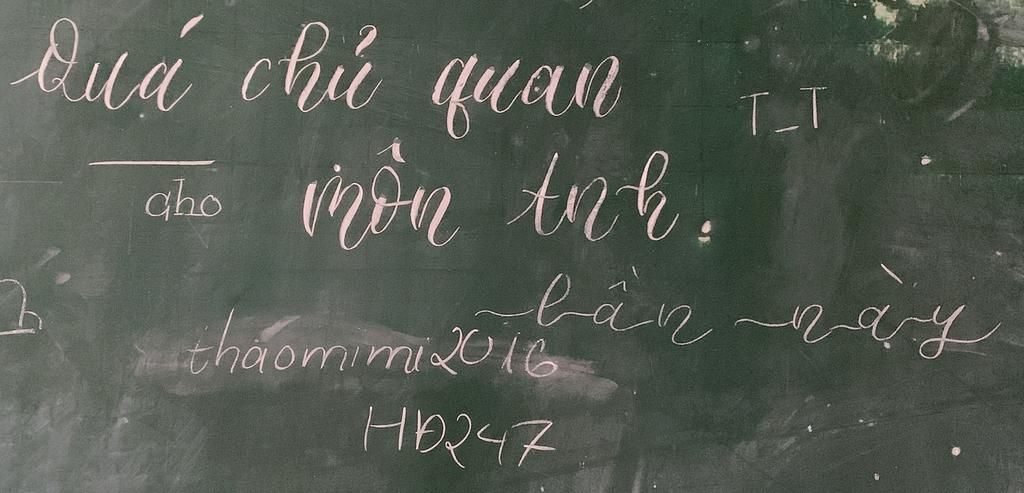 Quá chủ quan T_T
cho môn tnh.
lần này
thaomimi2016
HĐ247